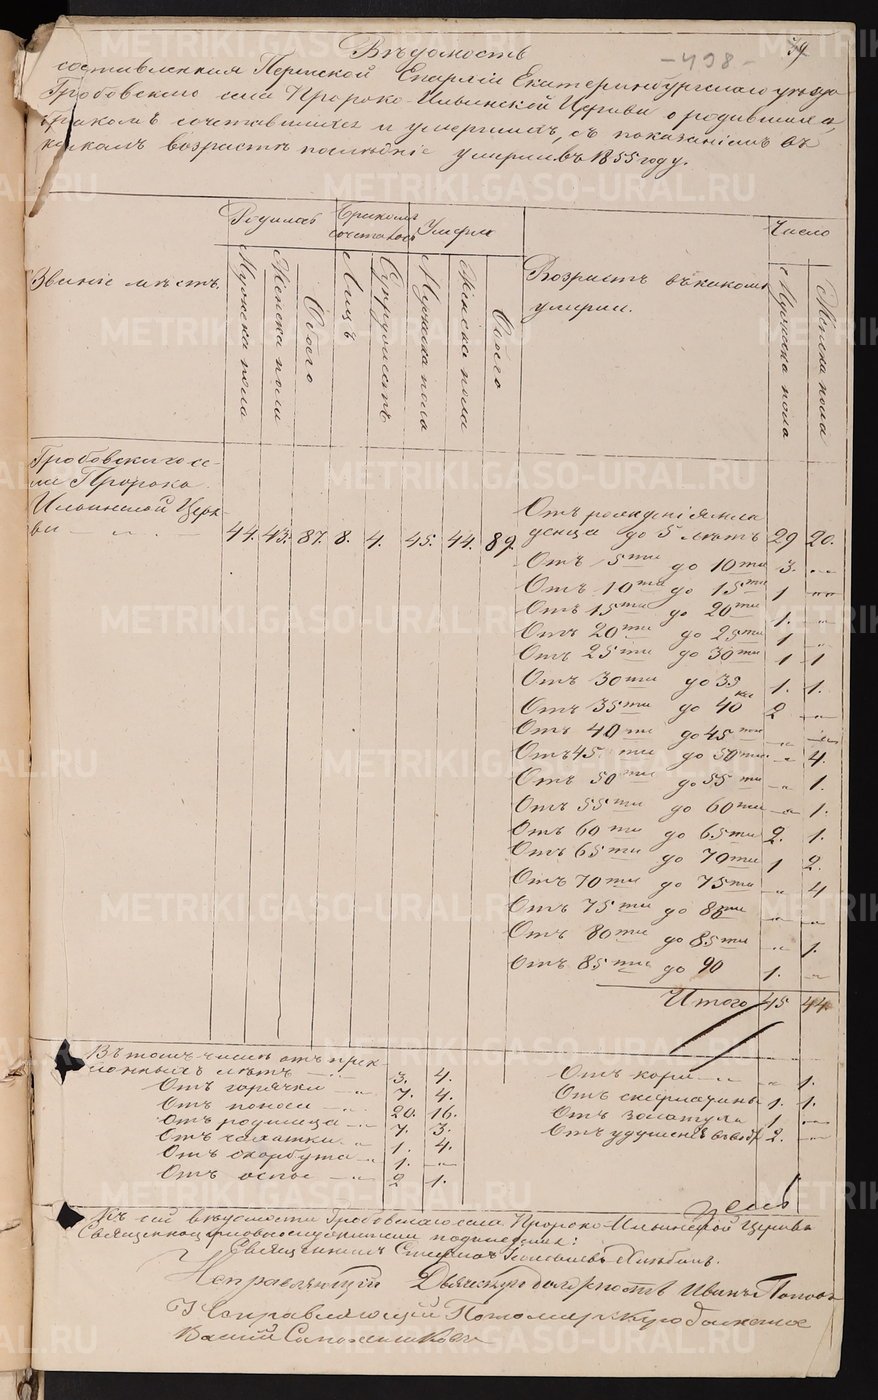 Вѣдомость
-498-
составленная Пермской Епархіи Екатеринбургскаго уѣзда
Гробовскаго села Пророко-Ильинской Церкви о родившихся,
бракомъ сочетавшихся и умершихъ, съ показаніемъ въ
какомъ возрастѣ послѣдніе умерли въ 1855 году.
Званіе мѣстъ.
Родилось
Мужеска пола
Женска пола
Обоего
Бракомъ сочеталось
Лицъ
Супружествъ
Умерло
Мужеска пола
Женска пола
Обоего
Возрастъ въ какомъ
умерли.
Число
Мужеска пола
Женска пола
Гробовскаго се-
ла Пророко
Ильинской Церк-
ви 44. 43. 87. 8. 4. 45. 44. 89.
Отъ рожденія мла
денца до 5 лѣтъ 29 20.
Отъ 5ти до 10ти 3. „
Отъ 10ти до 15ти 1 „
Отъ 15ти до 20ти 1. „
Отъ 20ти до 25ти 1 „
Отъ 25ти до 30ти 1 1
Отъ 30ти до 35 1. 1.
Отъ 35ти до 40 2 „
Отъ 40ти до 45ти „ „
Отъ 45ти до 50ти „ 4.
Отъ 50ти до 55ти „ 1.
Отъ 55ти до 60ти „ 1.
Отъ 60ти до 65ти 2. 1.
Отъ 65ти до 70ти 1 2.
Отъ 70ти до 75ти „ 4
Отъ 75ти до 80ти „ „
Отъ 80ти до 85ти „ 1.
Отъ 85ти до 90 1. „
Итого 45 44
Въ томъ числѣ отъ прек-
лонныхъ лѣтъ 3. 4.
Отъ горячки 7. 4.
Отъ поноса 20. 16.
Отъ родимца 7. 3.
Отъ чахотки 1. 4.
Отъ скорбута 1. „
Отъ оспы 2 1.
Отъ кори „ 1.
Отъ скарлатины 1. 1.
Отъ 1 „
Отъ удушенія 2. „
Къ сей вѣдомости Гробовскаго села Пророко-Ильинской Церкви
Священноцерковнослужители подписались:
Священникъ Стефанъ
Исправляющій Дьяческую должность Иванъ Попов
Исправляющій Пономарскую должность
Василій Сапожников
METRIKI.GASO-URAL.RU